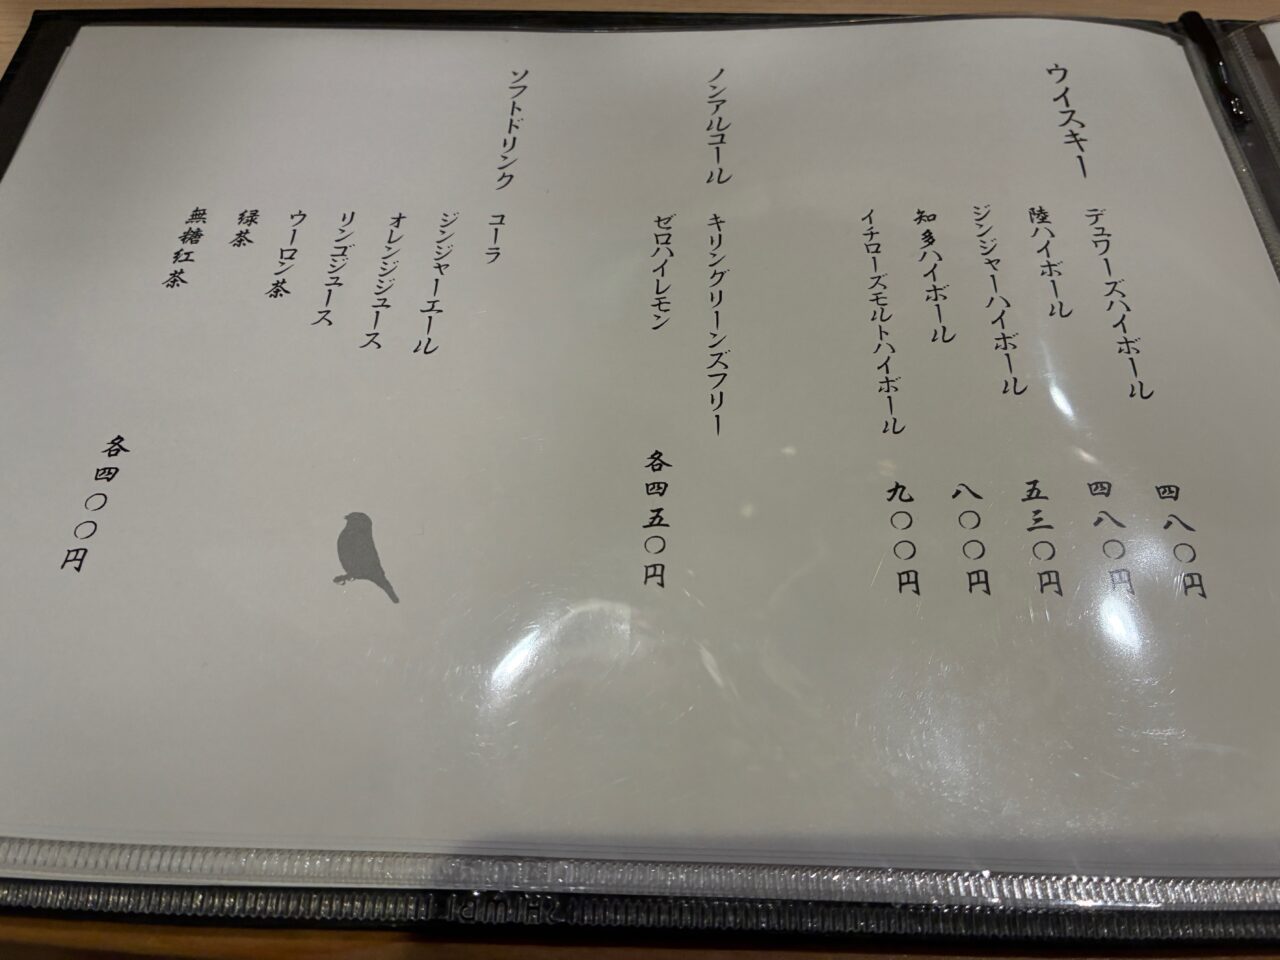 ウイスキー
デュワーズハイボール 四八〇円
陸ハイボール 四八〇円
ジンジャーハイボール 五三〇円
知多ハイボール 八〇〇円
イチローズモルトハイボール 九〇〇円
ノンアルコール
キリングリーンズフリー
ゼロハイレモン
各四五〇円
ソフトドリンク
コーラ
ジンジャーエール
オレンジジュース
リンゴジュース
ウーロン茶
緑茶
無糖紅茶
各四〇〇円